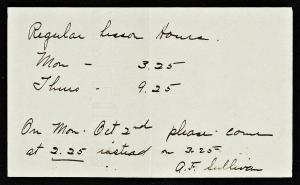 Regular Lesson Hours.
Mon - 3.25
Thurs - 9.25
On Mon. Oct 2nd please come
at 2.25 instead or 3.25.
A.F. Sullivan